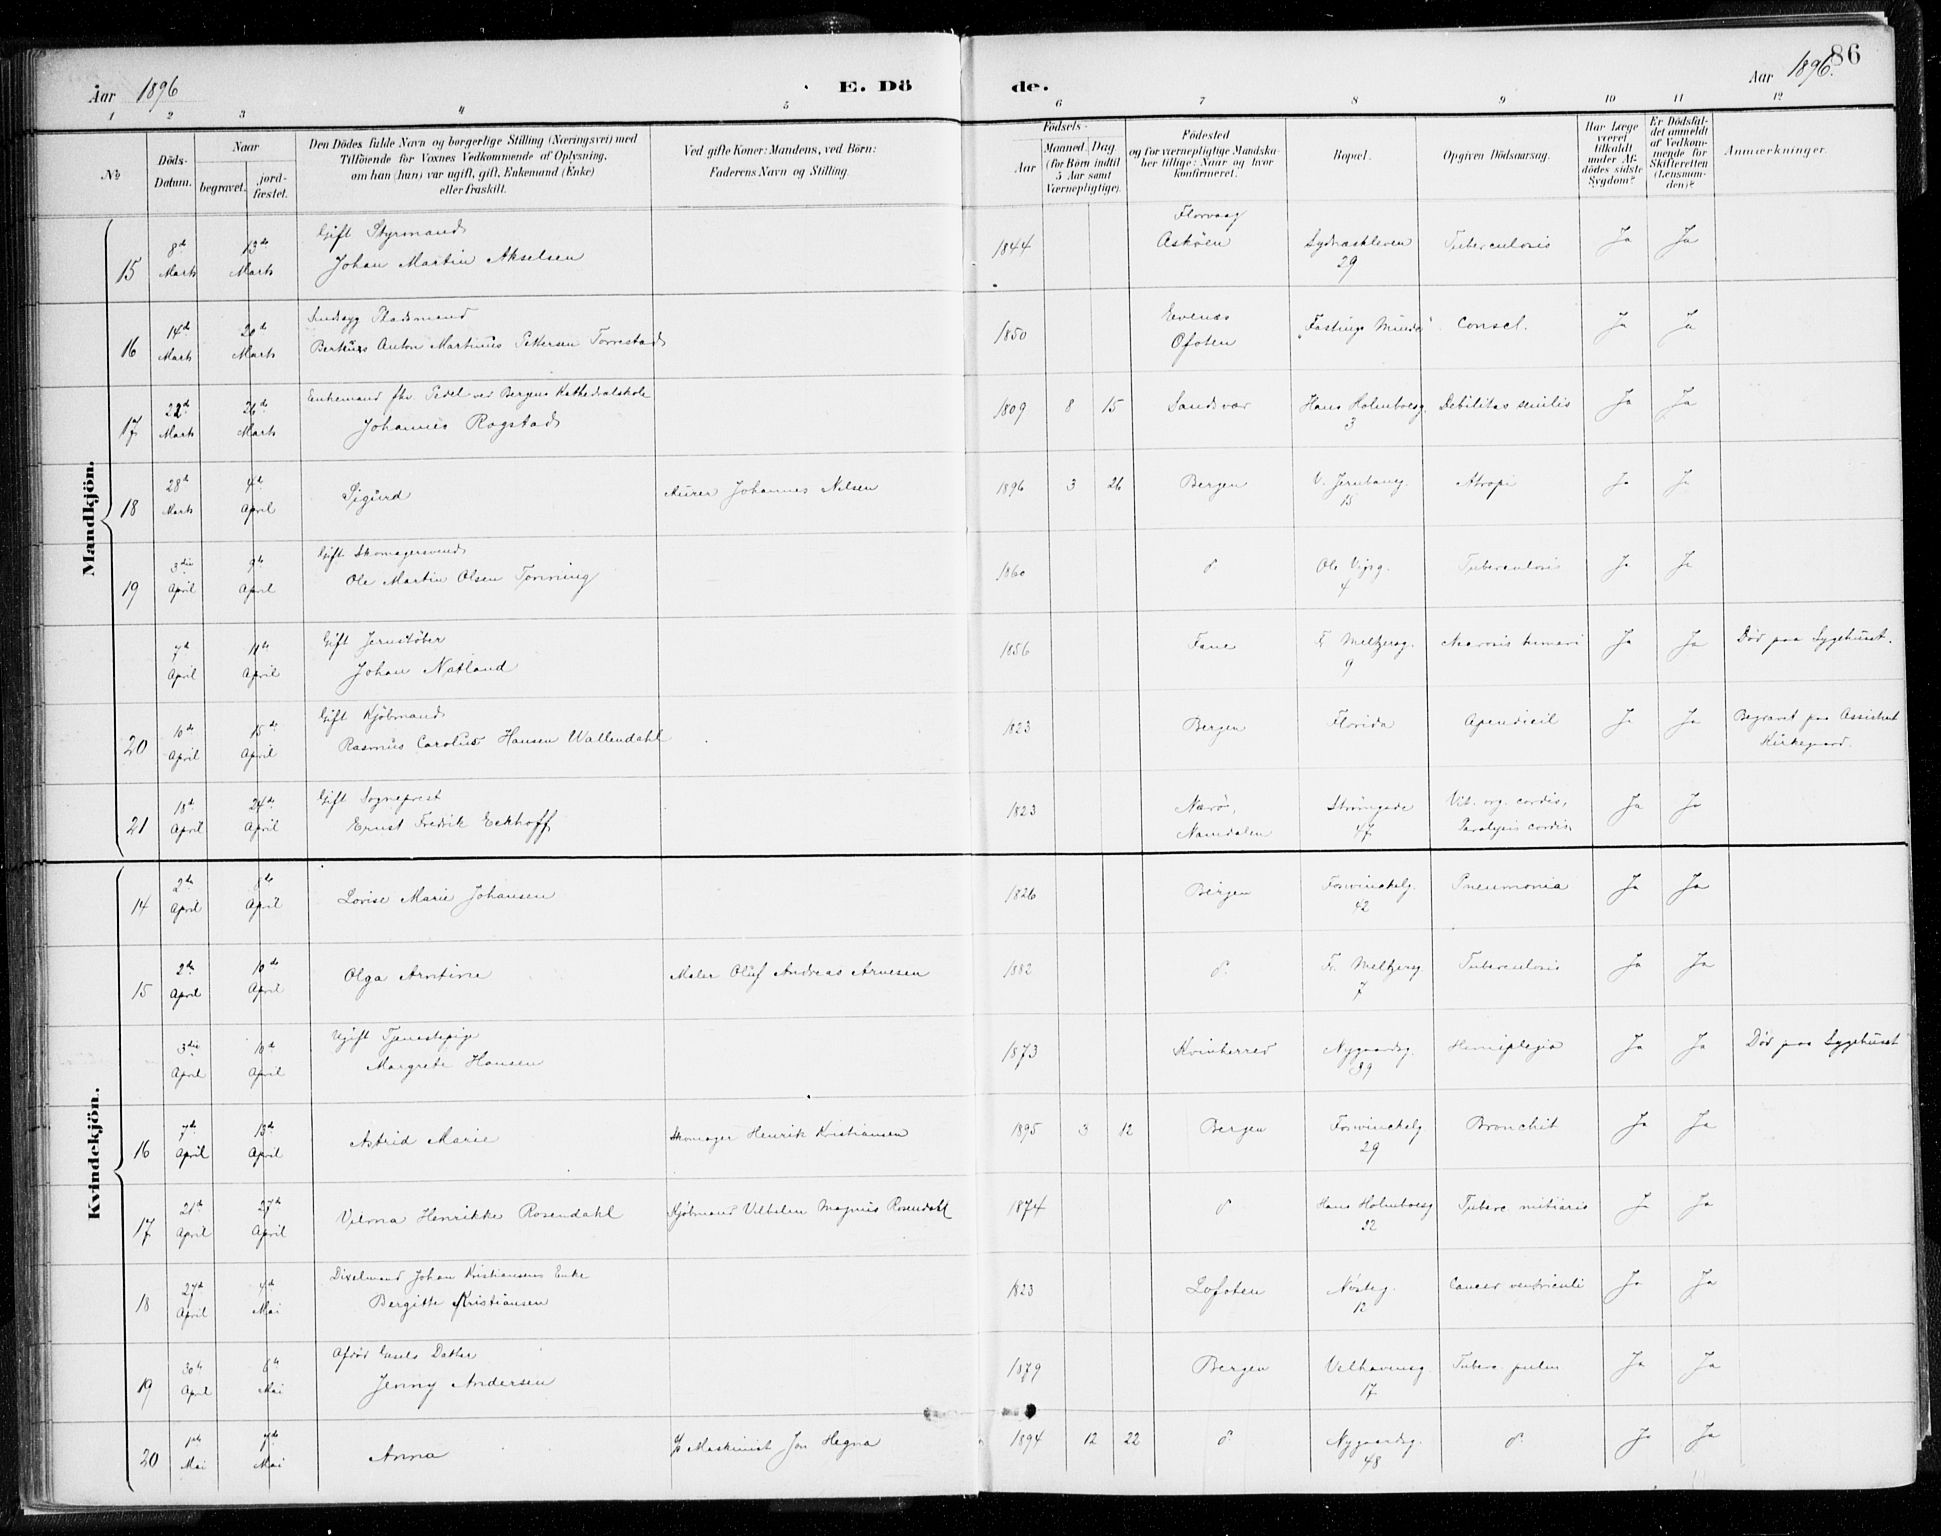 Aar 1896
E. Dö
de.
Aar 1896.
86
1 2 3 4 5 6 7 8 9 10 11 12
No
Döds-Datum.
Naar
begravet.
jordfæstet.
Den Dödes fulde Navn og borgerlige Stilling (Næringsvei) med
Tilföiende for Voxnes Vedkommende af Oplysning,
om han (hun) var ugift, gift, Enkemand (Enke)
eller fraskilt.
Ved gifte Koner: Mandens, ved Börn:
Faderens Navn og Stilling.
Födsels-
Aar
Maaned. Dag.
(for Börn indtil
5 Aar samt
Værnepligtige).
Födested
og for værnepligtige Mandska-
ber tillige: Naar og hvor
konfirmeret.
Bopæl.
Opgiven Dödsaarsag.
Har Læge
været
tilkaldt
under Af-
dödes sidste
Sygdom?
Er Dödsfal-
det anmeldt
af Vedkom-
mende for
Skifteretten
(Lensman-
den)?
Anmærkninger.
Mandkjön.
15 8de Marts 13de Marts Gift Styrmand Johan Martin Akselsen 1844 Florvaag Askøen Sydnæskleven 29 Tuberculosis Ja Ja
16 14de Marts 20de Marts Sindssyg Pladsmand Anton Martinus Pettersen Torrestad 1850 Evenæs Ofoten Fastings Minde Ja Ja
17 22de Marts 26de Marts Enkemand fhv. Pedel ved Bergens Kathedralskole Johannes Rogstad 1809 8 15 Sandsvær Hans Holmboesg. 3 Debilitas senilis Ja Ja
18 28de Marts 4de April Sigurd Murer Johannes Nilsen 1896 3 26 Bergen V. Jernbaneg. 15 Atropi Ja Ja
19 3die April 9de April Gift Skomagersvend Ole Martin Olsen Tonning 1860 do Ole Vigsg. 4 Tuberculosis Ja Ja
7de April 11te April Gift Jernstøber Johan Natland 1856 Fane Fr. Meltzersg. 9 Ja Ja Død paa Sygehuset.
20 10de April 15de April Gift Kjøbmand Rasmus Carolus Hansen Wallendahl 1823 Bergen Florida Apendicit Ja Ja Begravet paa Assistent Kirkegaard.
21 18de April 24de April Gift Sogneprest Ernst Fredrik Eckhoff 1823 Nærø, Namdalen Strømgade 47 Vit. org. cordis, Paralysis cordis. Ja Ja
Kvindekjön.
14 2den April 8de April Lovise Marie Johansen 1826 Bergen Fosvinckelg. 42 Pneumonia Ja Ja
15 2den April 10de April Olga Arntine Maler Oluf Andreas Arnesen 1882 do Fr. Meltzersg 7 Tuberculosis Ja Ja
3die April 10de April Ugift Tjenestepige Margrete Hansen 1873 Kvinherred Nygaardsg. 89 Hemiplegia Ja Ja Død paa Sygehuset
16 7de April 13de April Astrid Marie Skomager Henrik Kristiansen 1895 3 12 Bergen Fosvinckelg 29 Bronchit Ja Ja
17 21de April 27de April Vilma Henrikke Rosendahl Kjøbmand Vilhelm Magnus Rosendahl 1874 do Hans Holmboesg 22 Tuberc. miliaris Ja Ja
18 27de April 4de Mai Dixelmand Johan Kristiansens Enke Bergitte Kristiansen 1823 Lofoten Nøsteg. 12 Cancer ventriculi Ja Ja
19 30te April 6te Mai Afdød Datter Jenny Andersen 1879 Bergen Velhavensg. 17 Tuberc. pulm. Ja Ja
20 1ste Mai 7de Mai Anna Maskinist Jon Hegna 1894 12 22 do Nygaardsg. 48 do Ja Ja